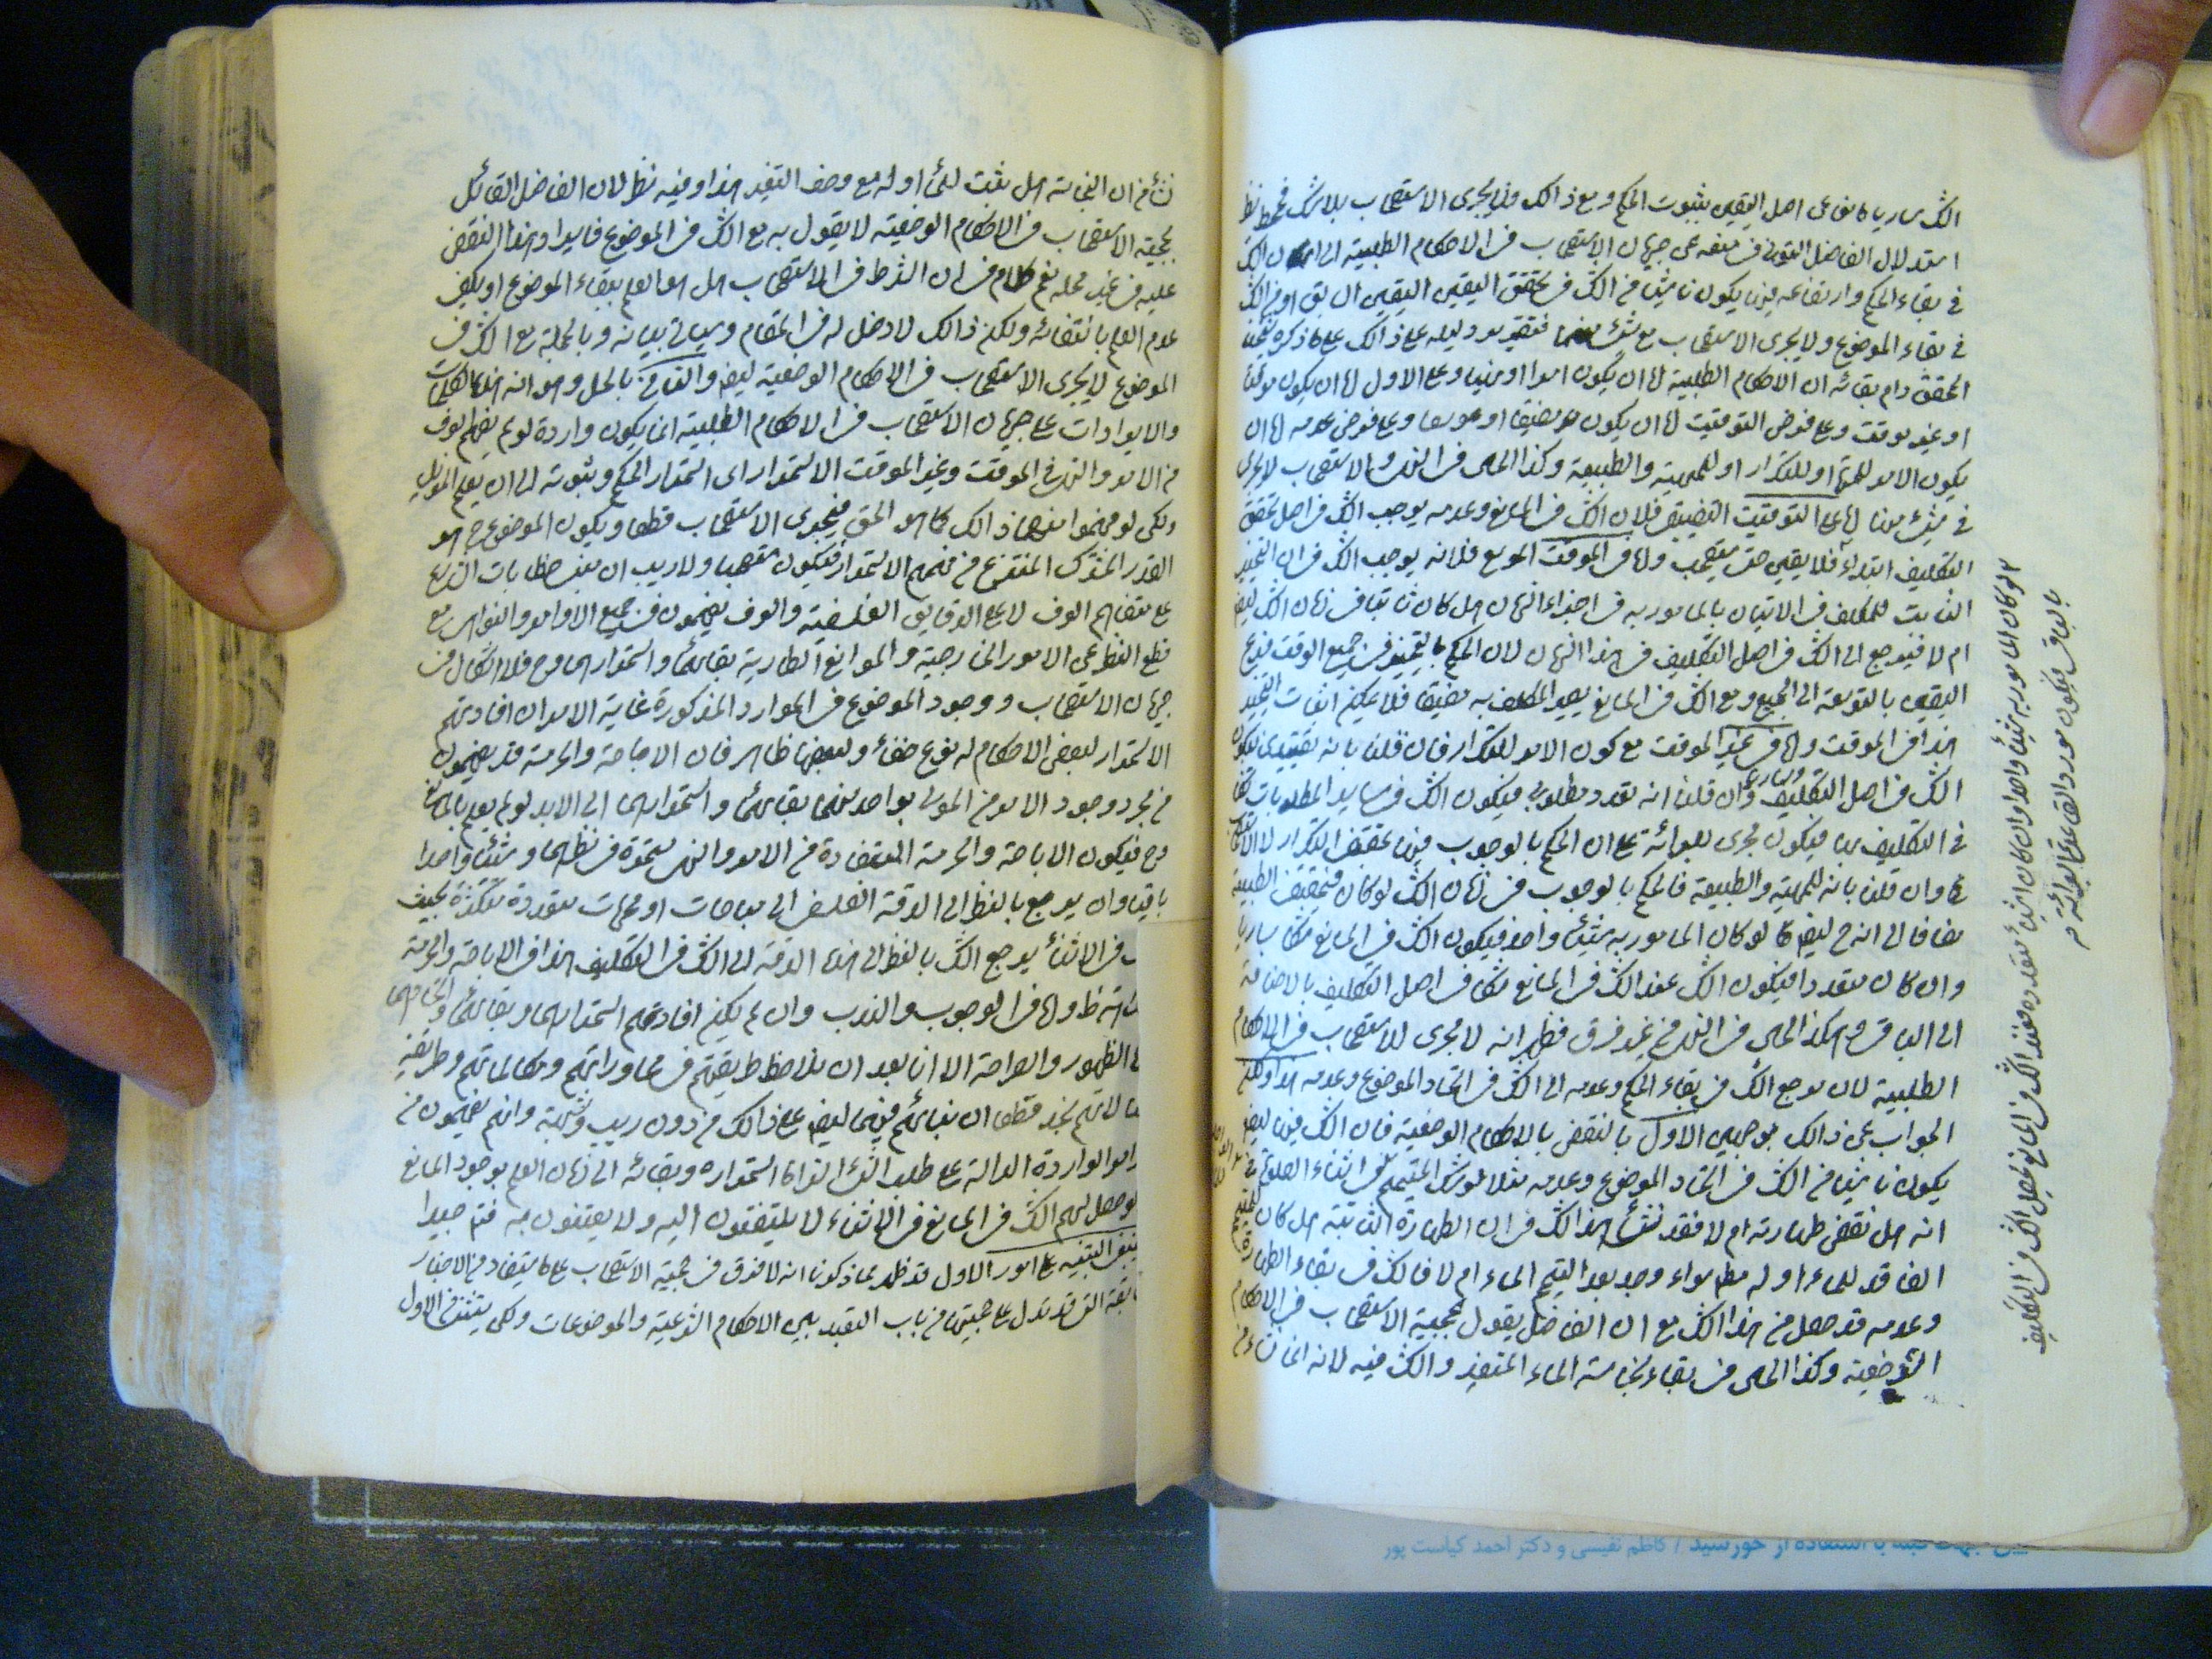 الشك ساريا كان على اصل اليقين بثبوت الحكم ومع ذالك فلا يجرى الاستصحاب بلا شك فمحط نظر
استدلال الفاضل التونى فى منعه عن جريان الاستصحاب فى الاحكام الطلبية الى ان الشك
فى بقاء الحكم وارتفاعه فيها يكون ناشيا من الشك فى تحقق اليقين السابق او من الشك
فى بقاء الموضوع ولا يجرى الاستصحاب مع شىء منهما فتقرير دليله على ذالك على ما ذكره شيخنا
المحقق دام بقائه ان الاحكام الطلبية اما ان يكون امرا او نهيا وعلى الاول اما ان يكون موقتا
او غير موقت وعلى فرض التوقيت اما ان يكون مضيقا او موسعا وعلى فرض عدمه اما ان
يكون الامر للمرة او للتكرار او للمهية والطبيعة وكذا الحال فى النهى والاستصحاب لا يجرى
فى شىء منها اما على التوقيت التضييق فلان الشك فى المانع وعدمه يوجب الشك فى اصل تحقق
التكليف ابتداء فلا يقين حتى يستصحب واما فى الموقت الموسع فلانه يوجب الشك فى ان التخيير
الثابت للمكلف فى الاتيان بالمامور به فى اجزاء الزمان هل كان ثابتا فى زمان الشك ايضا
ام لا فيرجع الى الشك فى اصل التكليف فى هذا الزمان لان الحكم بالتخيير فى جميع الوقت فرع
اليقين بالتوسعة الى الجميع ومع الشك فى المانع يصير المكلف به مضيقا فلا يمكن اثبات التخيير
هذا فى الموقت واما فى غير الموقت مع كون الامر للتكرار فان قلنا بانه تقييدى فيكون
الشك فى اصل التكليف وان قلنا انه تعدد مطلوبى فيكون الشك فى ساير المطلوبات شكا
فى التكليف بها فيكون مجرى للبرائة على ان الحكم بالوجوب فيها بمقتضى التكرار لا الاستصحاب
وان قلنا بانه للمهية والطبيعة فالحكم بالوجوب فى زمان الشك لو كان فبمقتضى الطبيعة
مضافا الى انه ح ايضا لو كان المامور به شيئا واحدا فيكون الشك فى المانع شكا ساريا
وان كان متعددا فيكون الشك عند الشك فى المانع شكا فى اصل التكليف بالاضافة
الى الباقى وهكذا الحال فى النهى من غير فرق فظهر انه لا مجرى للاستصحاب فى الاحكام
الطلبية لان مرجع الشك فى بقاء الحكم وعدمه الى الشك فى اتحاد الموضوع وعدمه هذا ولكن
الجواب عن ذالك بوجهين الاول بالنقض بالاحكام الوضعية فان الشك فيها ايضا
يكون ناشيا من الشك فى اتحاد الموضوع وعدمه مثلا لو شك المتيمم فى اثناء الصلوة
انه هل نقض طهارته ام لا فقد نشأ هذا الشك فى ان الطهارة الثابتة هل كان
الفاقد للماء او له مطلقا سواء وجد بعد التيمم الماء ام لا فالشك فى بقاء الطهارة
وعدمه قد حصل من هذا الشك مع ان الفاضل يقول بحجية الاستصحاب فى الاحكام
الوضعية وكذا الحال فى بقاء نجاسة الماء المتغير والشك فيه لانه انما نشأ
لو كان المامور به شيئا واحدا وان كان اشياء متعددة فعند الشك فى المانع يحصل الشك فى التكليف
بالباقى فيكون مورد القاعدة البرائة
نشأ من ان النجاسة هل يثبت للماء او له مع وصف التغير هذا وفيه نظر لان الفاضل القائل
بحجية الاستصحاب فى الاحكام الوضعية لا يقول به مع الشك فى الموضوع فايراد هذا النقض
عليه فى غير محله نعم كلام فى ان الشرط فى الاستصحاب هل هو العلم ببقاء الموضوع او يكفى
عدم العلم بانتفائه ولكن ذالك لا دخل له فى المقام وسيأتى بيانه وبالجملة مع الشك فى
الموضوع لا يجرى الاستصحاب فى الاحكام الوضعية ايضا والثانى بالحل وهو ان هذه الكلمات
والايرادات على جريان الاستصحاب فى الاحكام الطلبية انما يكون واردة لو لم يفهم العرف
من الامر والنهى فى الموقت وغير الموقت الاستمرار اى استمرار الحكم وثبوته الى ان يعلم المزيل
ولكن لو فهموا منهما ذالك كما هو الحق فيجرى الاستصحاب قطعا ويكون الموضوع ح هو
القدر المشترك المنتزع من فهمهم الاستمرار فيكون مستصحبا ولا ريب ان مبنى خطابات الشارع
على متفاهم العرف لا على الدقايق الفلسفية والعرف يفهمون فى جميع الاوامر والنواهى مع
قطع النظر عن الامور الخارجية والموانع الطارية بقائها واستمرارها وح فلا اشكال فى
جريان الاستصحاب ووجود الموضوع فى الموارد المذكورة غاية الامر ان افادتهم
الاستمرار لبعض الاحكام له نوع خفاء ولبعضها ظاهر فان الاباحة والحرمة قد يفهمون
من مجرد وجود الامر من المولى بواحد منهما بقائهما واستمرارهما الى الابد لو لم يعلم بالمانع
وح فيكون الاباحة والحرمة المستفادة من الامر والنهى مستمرة فى نظرهما وشيئا واحدا
باقيا وان يرجع بالنظر الى الدقة الفلسفى الى مباحات او محرمات متعددة متكثرة بحيث
فى الاثناء يرجع الشك بالنظر الى هذه الدقة الى الشك فى التكليف هذا فى الاباحة والحرمة
واما فى الوجوب والندب وان لم يكن افادتهم استمرارهما وبقائهما
الظهور والصراحة الا انا بعد ان نلاحظ طريقتهم فى محاوراتهم ومكالماتهم وطريقة
نجد قطعا ان بنائهم فيهما ايضا على ذالك من دون ريب وشبهة وانهم يفهمون من
الواردة الدالة على طلب الشىء التزاما استمراره وبقائه الى زمان العلم بوجود المانع
حصل لهم الشك فى المانع فى الاثناء لا يلتفتون اليه ولا يعتنون به فتدبر جيدا
ينبغى التنبيه على امور الاول قد ظهر مما ذكرنا انه لا فرق فى حجية الاستصحاب على ما يستفاد من الاخبار
التى قد تدل على حجيتها من باب التعبد بين الاحكام الشرعية والموضوعات ولكن يستثنى من الاول